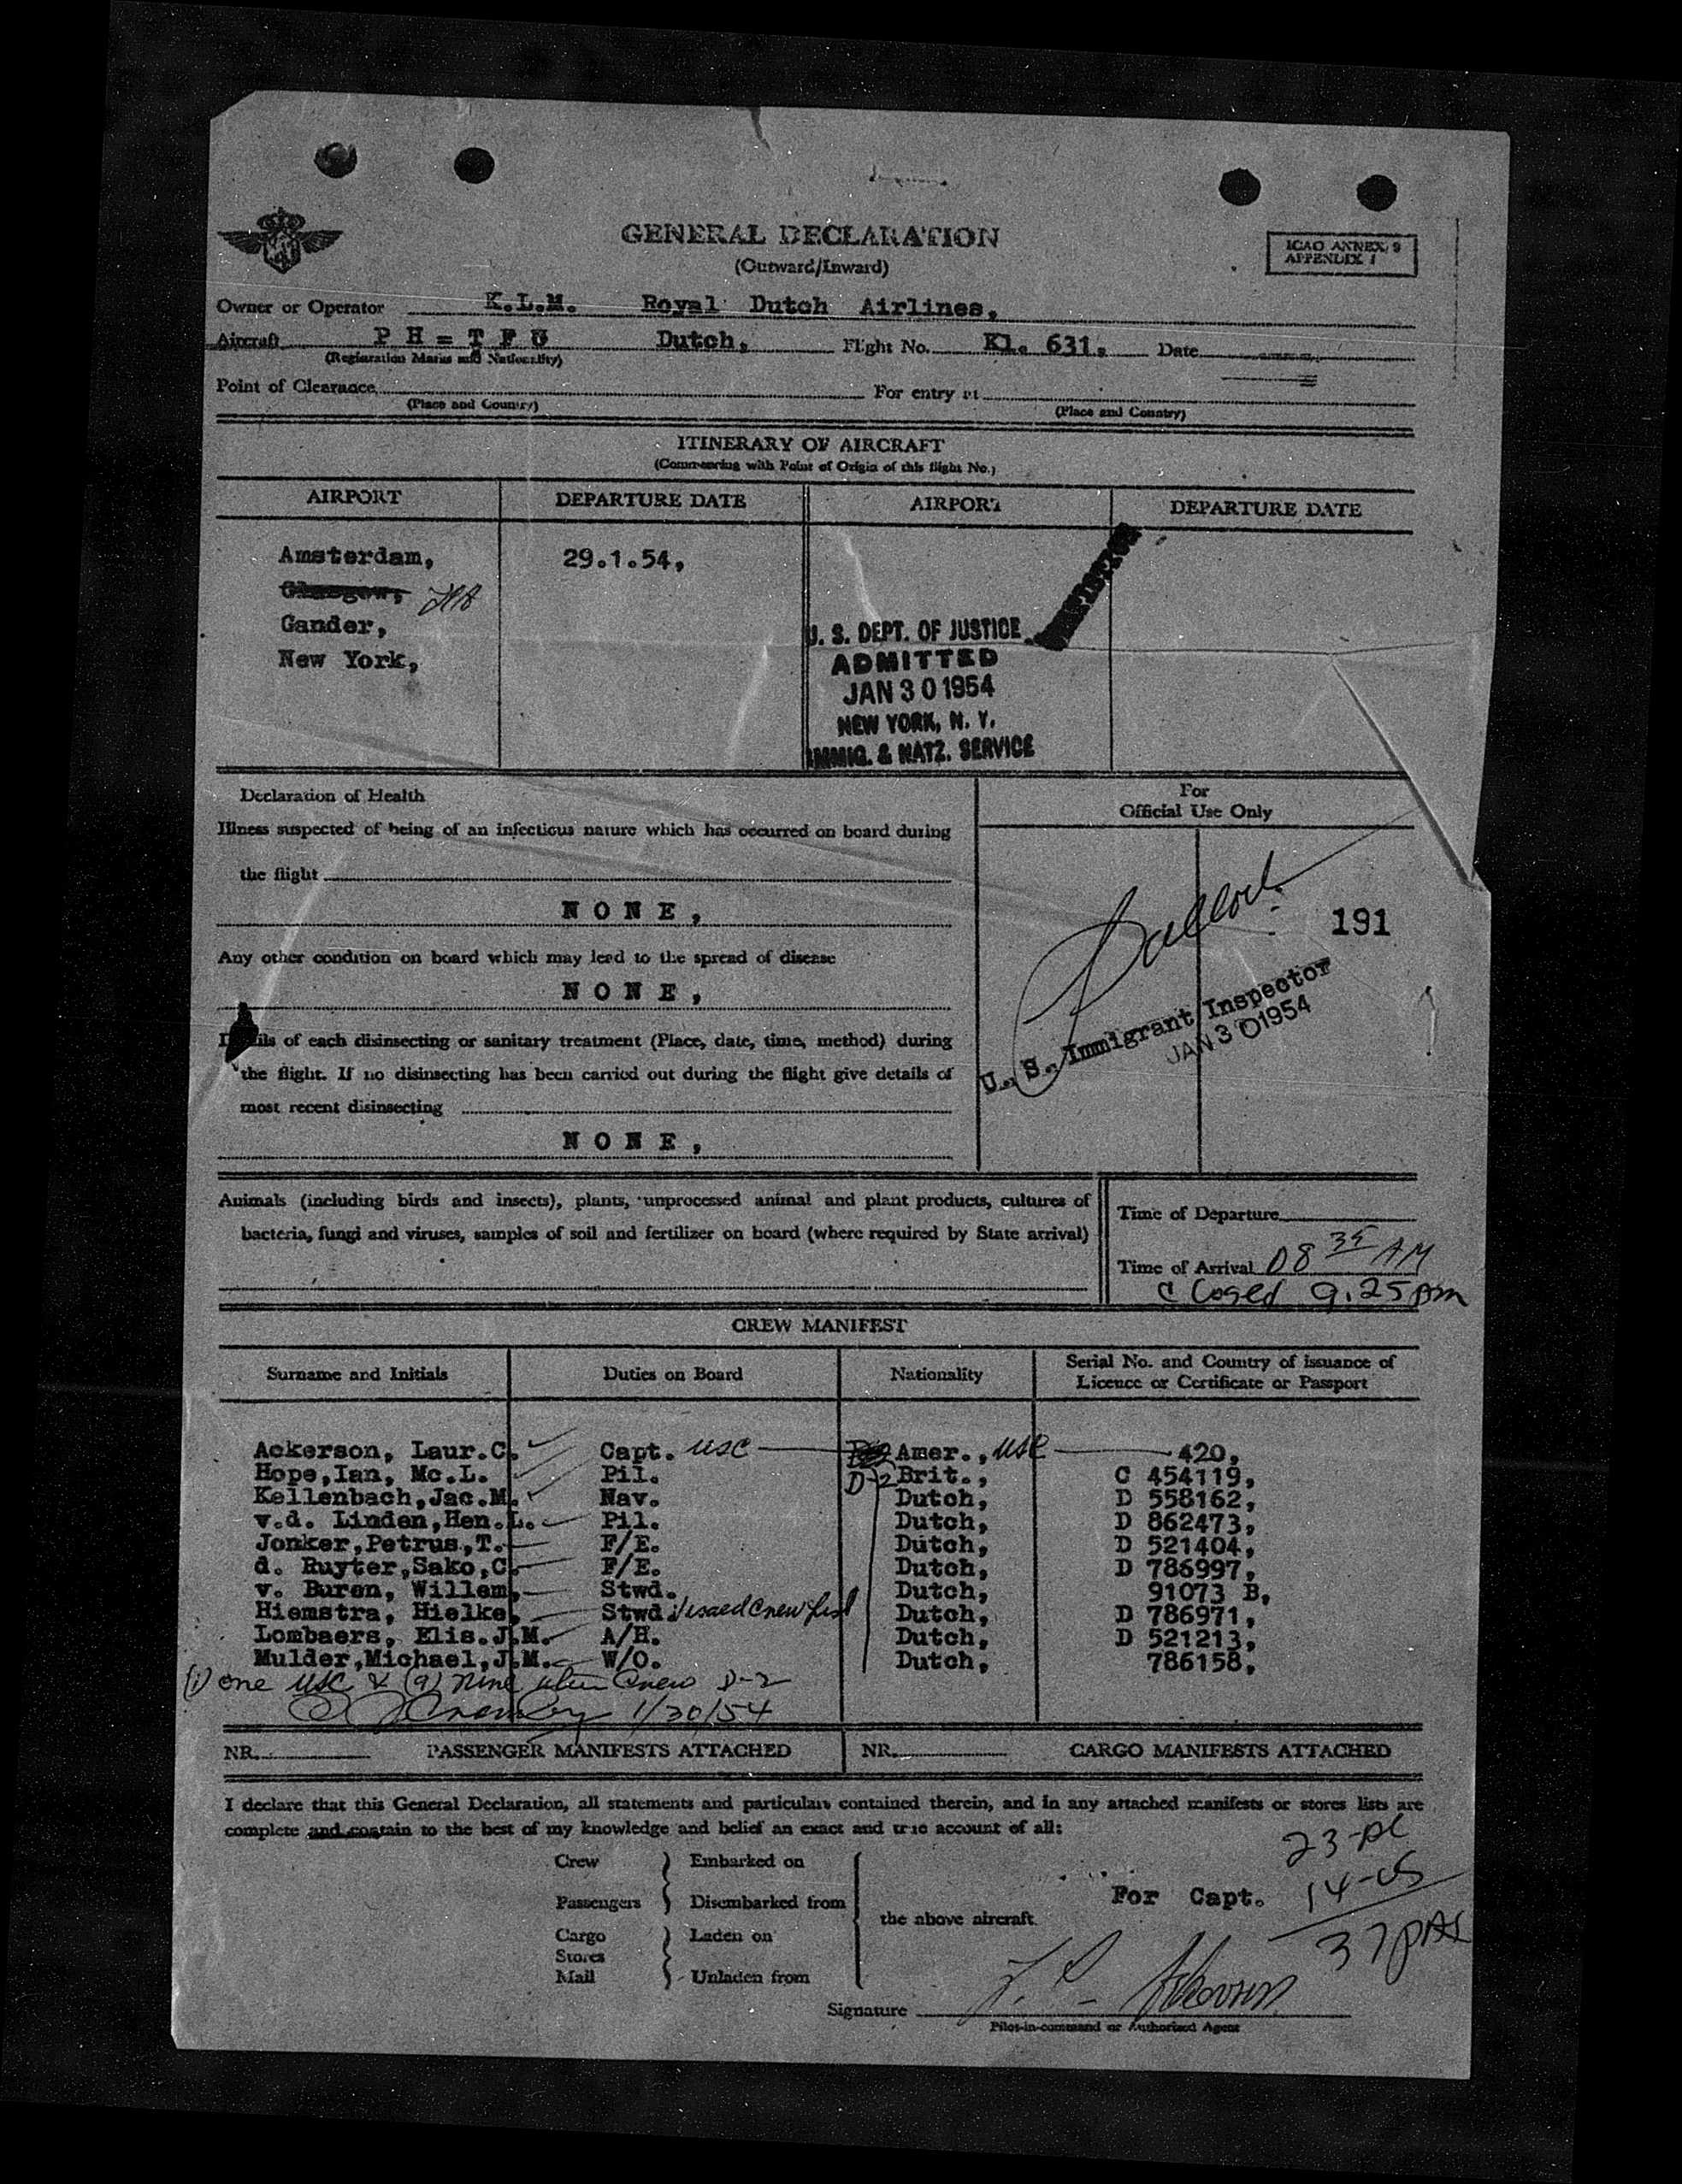 GENERAL DECLARATION
(Outward/Inward)
ICAO ANNEX 9
APPENDIX 1
Owner or Operator K.L.M. Royal Dutch Airlines,
Aircraft P H = T F U Dutch, Flight No. Kl. 631. Date
(Registration Marks and Nationality)
Point of Clearance For entry at
(Place and Country) (Place and Country)
ITINERARY OF AIRCRAFT
(Commencing with Point of Origin of this flight No.)
AIRPORT DEPARTURE DATE AIRPORT DEPARTURE DATE
Amsterdam, 29.1.54,
Glasgow,
Gander,
New York,
U. S. DEPT. OF JUSTICE
ADMITTED
JAN 30 1954
NEW YORK, N. Y.
IMMIG. & NATZ. SERVICE
Declaration of Health
For
Official Use Only
Illness suspected of being of an infectious nature which has occurred on board during
the flight
N O N E ,
191
Any other condition on board which may lead to the spread of disease
N O N E ,
U. S. Immigrant Inspector
JAN 30 1954
Details of each disinsecting or sanitary treatment (Place, date, time, method) during
the flight. If no disinsecting has been carried out during the flight give details of
most recent disinsecting
N O N E ,
Animals (including birds and insects), plants, unprocessed animal and plant products, cultures of
bacteria, fungi and viruses, samples of soil and fertilizer on board (where required by State arrival)
Time of Departure
Time of Arrival 08 35 AM
Closed 9.25 AM
CREW MANIFEST
Surname and Initials Duties on Board Nationality Serial No. and Country of issuance of
Licence or Certificate or Passport
Ackerson, Laur.C. Capt. USC Amer., USC 420,
Hope,Ian, Mc.L. Pil. D-2 Brit., C 454119,
Kellenbach,Jac.M. Nav. Dutch, D 558162,
v.d. Linden,Hen.L. Pil. Dutch, D 862473,
Jonker,Petrus,T. F/E. Dutch, D 521404,
d. Ruyter,Sako,C. F/E. Dutch, D 786997,
v. Buren, Willem, Stwd. Dutch, 91073 B,
Hiemstra, Hielke, Stwd. Visaed Crew List Dutch, D 786971,
Lombaers, Elis.J.M. A/H. Dutch, D 521213,
Mulder,Michael,J.M. W/O. Dutch, 786158,
(1) one USC & (9) nine alien Crew D-2
1/30/54
NR. PASSENGER MANIFESTS ATTACHED NR. CARGO MANIFESTS ATTACHED
I declare that this General Declaration, all statements and particulars contained therein, and in any attached manifests or stores lists are
complete and contain to the best of my knowledge and belief an exact and true account of all:
Crew Embarked on
Passengers Disembarked from
the above aircraft.
Cargo Laden on
Stores
Mail Unladen from
For Capt.
14-US
37 pas
Signature L. C. Ackerson
Pilot-in-command or Authorized Agent